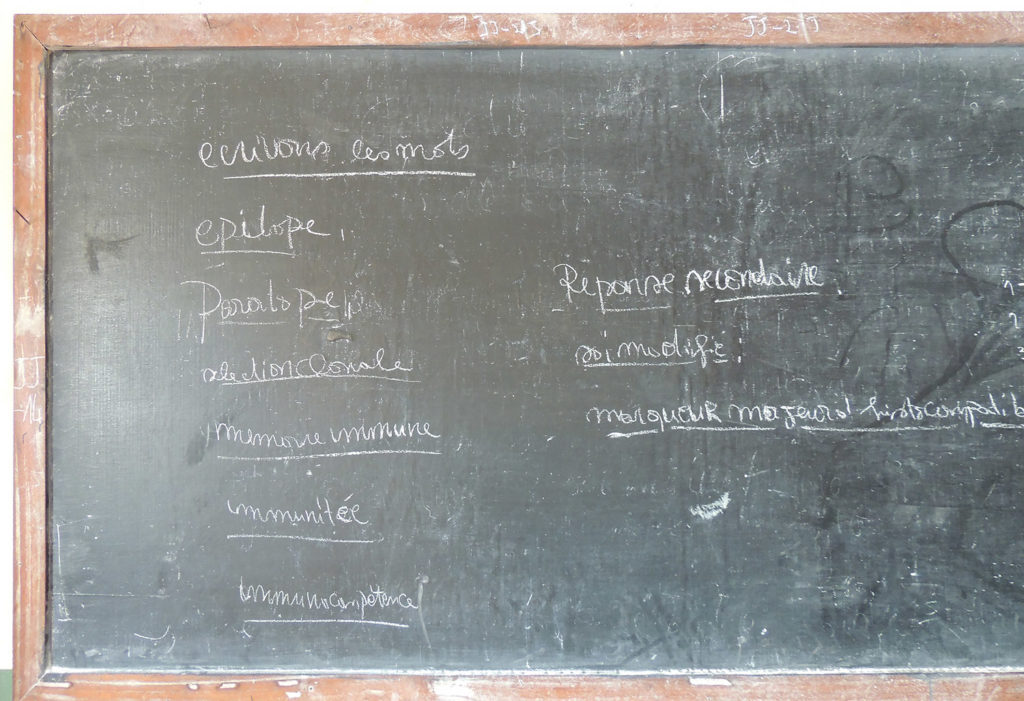 ecrivons les mots
epitope,
Paratope
selection clonale
memoire immune
immunitée
immunocompetence
Reponse secondaire.
soi modifie:
marqueur majeur d'histocompatib